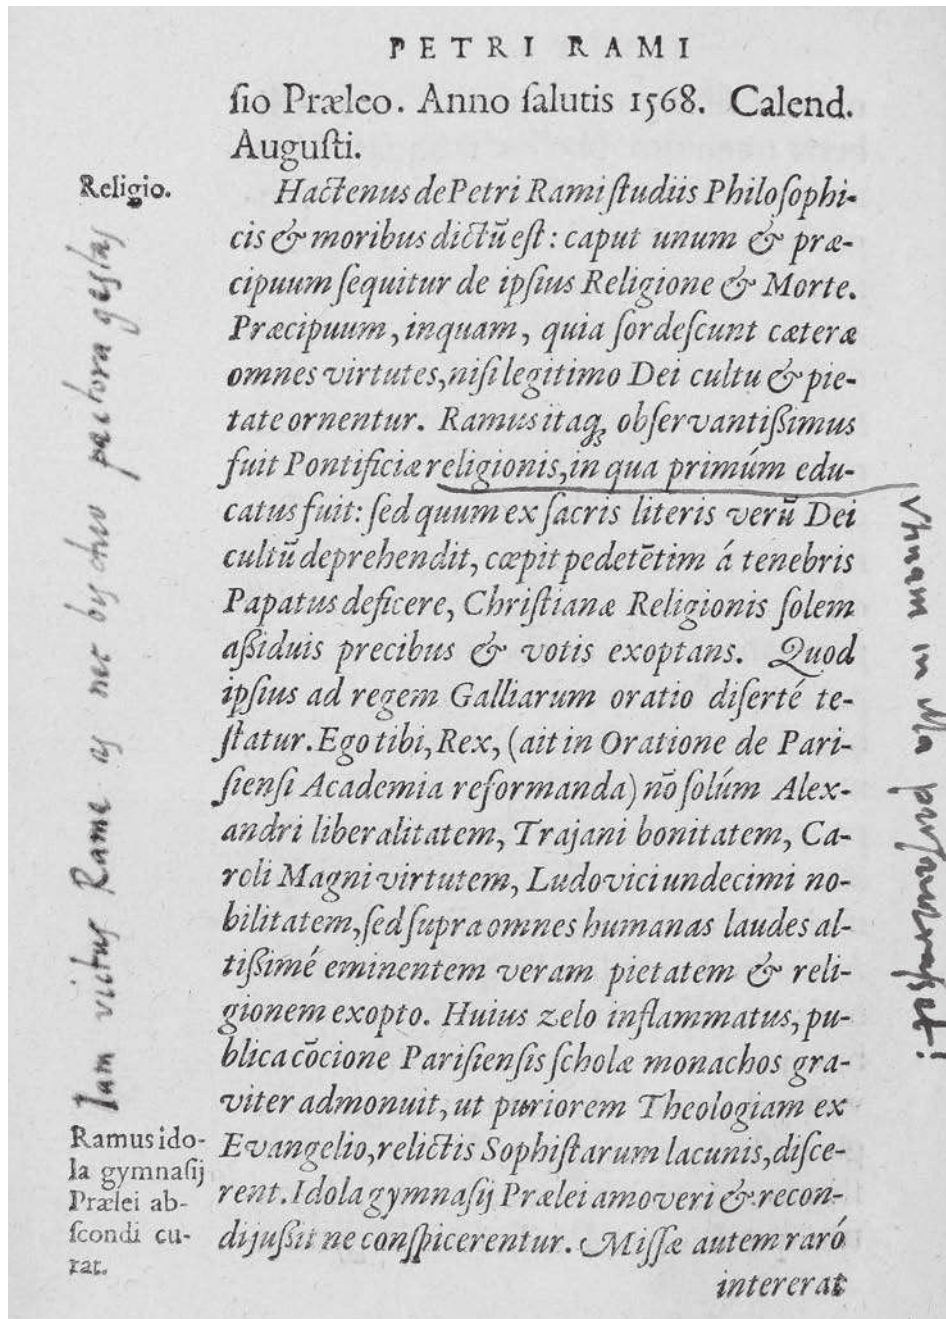 PETRI RAMI
sio Præleo. Anno salutis 1568. Calend.
Augusti.
Religio.
Hactenus de Petri Rami studiis Philosophi-
cis & moribus dictũ est: caput unum & præ-
cipuum sequitur de ipsius Religione & Morte.
Præcipuum, inquam, quia sordescunt cæteræ
omnes virtutes, nisi legitimo Dei cultu & pie-
tate ornentur. Ramus itaq; observantißimus
fuit Pontificiæ religionis, in qua primúm edu-
catus fuit: sed quum ex sacris literis verũ Dei
cultũ deprehendit, cœpit pedetẽtim á tenebris
Papatus deficere, Christianæ Religionis solem
aßiduis precibus & votis exoptans. Quod
ipsius ad regem Galliarum oratio diserté te-
statur. Ego tibi, Rex, (ait in Oratione de Pari-
siensi Academia reformanda) nõ solúm Alex-
andri liberalitatem, Trajani bonitatem, Ca-
roli Magni virtutem, Ludovici undecimi no-
bilitatem, sed supra omnes humanas laudes al-
tißimé eminentem veram pietatem & reli-
gionem exopto. Huius zelo inflammatus, pu-
blica cõcione Parisiensis scholæ monachos gra-
viter admonuit, ut puriorem Theologiam ex
Evangelio, relictis Sophistarum lacunis, disce-
rent. Idola gymnasij Prælei amoveri & recon-
di jußit ne conspicerentur. Missæ autem raró
intererat
Ramus ido-
la gymnasij
Prælei ab-
scondi cu-
rat.
Iam victus Rame es nec pectora gestas
Utinam in illa perseverasset!